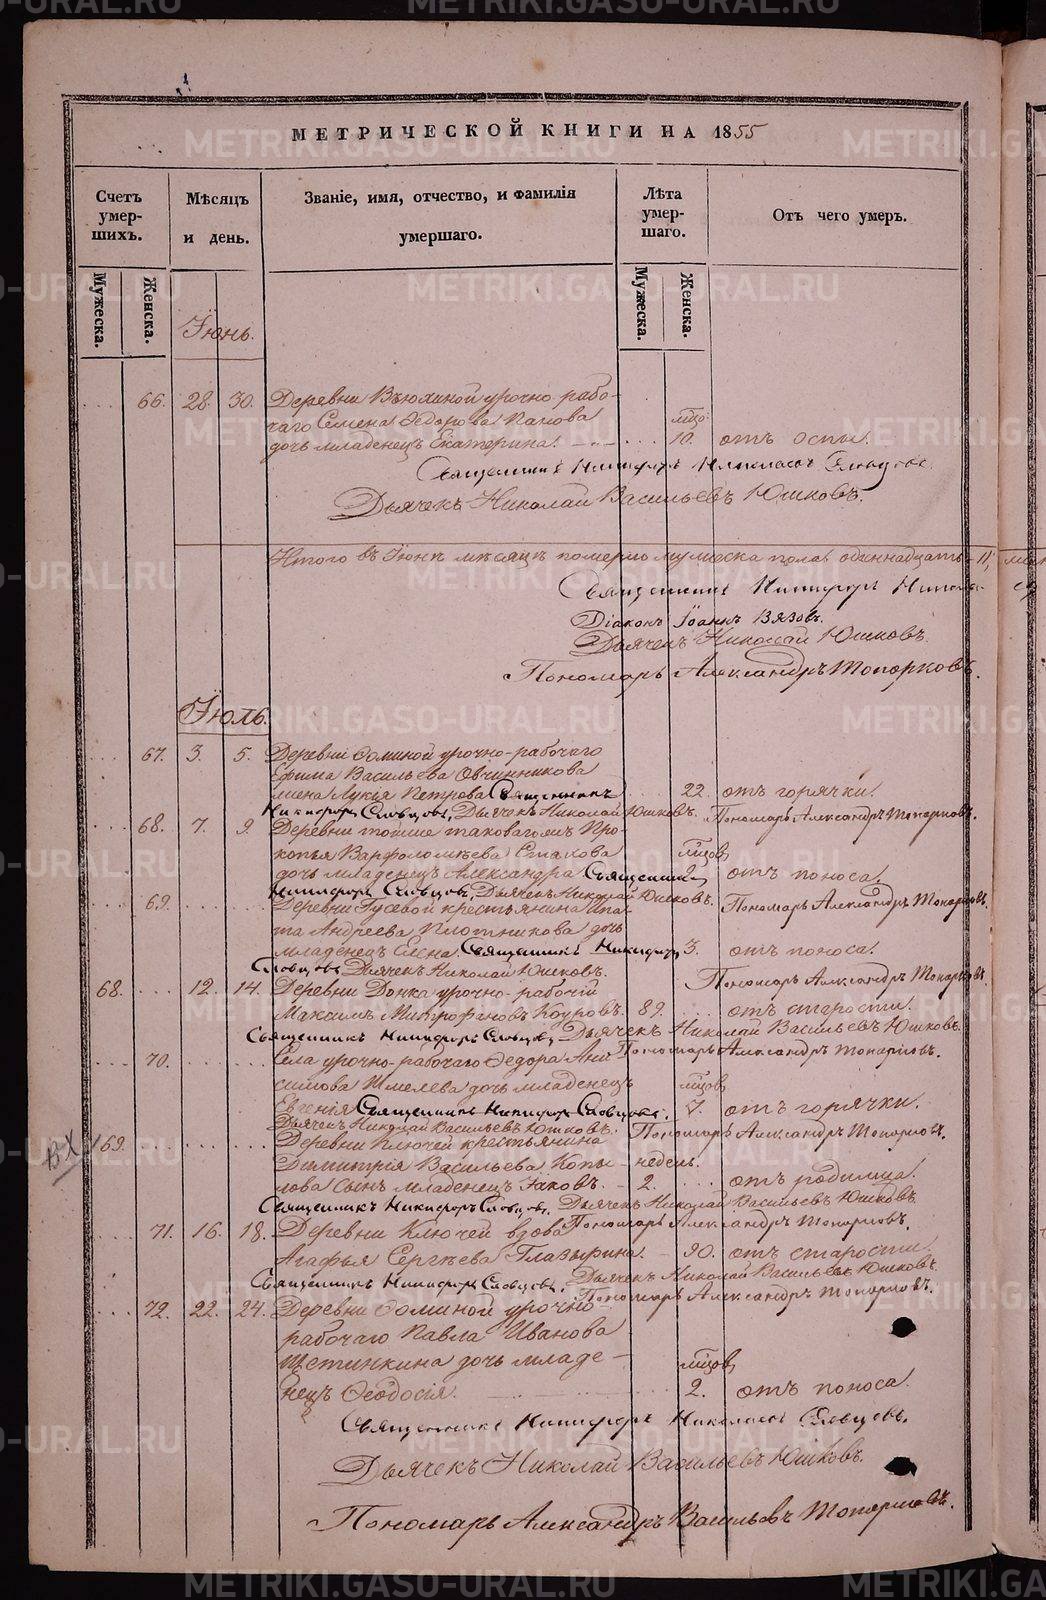 МЕТРИЧЕСКОЙ КНИГИ НА 1855
Счетъ умершихъ.
Мѣсяцъ и день.
Званіе, имя, отчество, и фамилія умершаго.
Лѣта умершаго.
Отъ чего умеръ.
Мужеска. Женска.
Мужеска. Женска.
Іюнь.
66. 28. 30. Деревни Вьюхиной урочно рабо-
чаго Семена Ѳедорова Панова мѣсо:
дочь младенецъ Екатерина. 10. отъ оспы.
Священникъ Никифоръ Николаевъ Словцовъ.
Дьячекъ Николай Васильевъ Юшковъ.
Итого въ Іюнѣ мѣсяцѣ померло мужеска пола одиннадцать 11,
Священникъ Никифоръ
Діаконъ Іоаннъ Вязовъ.
Дьячекъ Николай Юшковъ.
Пономарь Александръ Топорковъ.
Іюль.
67. 3. 5. Деревни Ѳоминой урочно-рабочаго
Ефима Васильева Овчинникова
жена Лукія Петрова Священникъ 22. отъ горячки.
Никифоръ Словцовъ, Дьячекъ Николай Юшковъ. Пономарь Александръ Топорковъ.
68. 7. 9. Деревни тойже таковагожъ Про-
копья Варфоломѣева Стахова мѣсцов
дочь младенецъ Александра Священникъ 2. отъ поноса.
Никифоръ Словцовъ, Дьячекъ Николай Юшковъ. Пономарь Александръ Топорковъ.
69. Деревни Гусевой крестьянина Ипа-
та Андреева Плотникова дочь
младенецъ Елена. Священникъ Никифоръ 3. отъ поноса.
Словцовъ Дьячекъ Николай Юшковъ. Пономарь Александръ Топорковъ
68. 12. 14. Деревни урочно-рабочій
Максимъ Митрофановъ 89. отъ старости.
Священникъ Никифоръ Словцовъ, Дьячекъ Николай Васильевъ Юшковъ.
Пономарь Александръ Топорковъ.
70. Села урочно-рабочаго Ѳедора Ани-
симова Шмелева дочь младенецъ мѣсцов
Евгенія Священникъ Никифоръ Словцовъ. 7. отъ горячки.
Дьячекъ Николай Васильевъ Юшковъ. Пономарь Александръ Топорковъ.
169. Деревни Ключей крестьянина
Димитрія Васильева Копы- недель.
лова сынъ младенецъ Іаковъ. - 2. отъ родимца.
Священникъ Никифоръ Словцовъ. Дьячекъ Николай Васильевъ Юшковъ.
Пономарь Александръ Топорковъ.
71. 16. 18. Деревни Ключей вдова
Агафья Сергѣева Глазырина. - 90. отъ старости.
Священникъ Никифоръ Словцовъ, Дьячекъ Николай Васильевъ Юшковъ.
Пономарь Александръ Топорковъ.
72. 22. 24. Деревни Ѳоминой урочно-
рабочаго Павла Иванова
Щетинкина дочь младе- мѣсцов
нецъ Ѳеодосія. 2. отъ поноса.
Священникъ Никифоръ Николаевъ Словцовъ.
Дьячекъ Николай Васильевъ Юшковъ.
Пономарь Александръ Васильевъ Топорковъ.